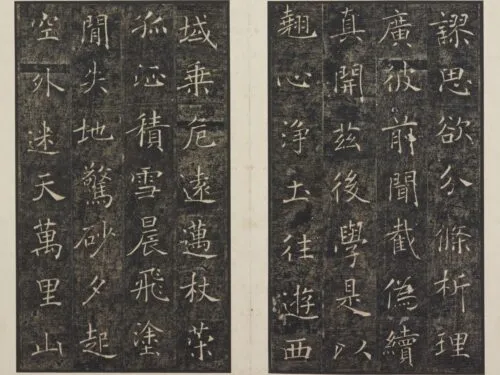 謬思欲分條析理
廣彼前聞截偽續
真開茲後學是以
翹心淨土往遊西
域乘危遠邁杖策
孤征積雪晨飛塗
閒失地驚砂夕起
空外迷天萬里山